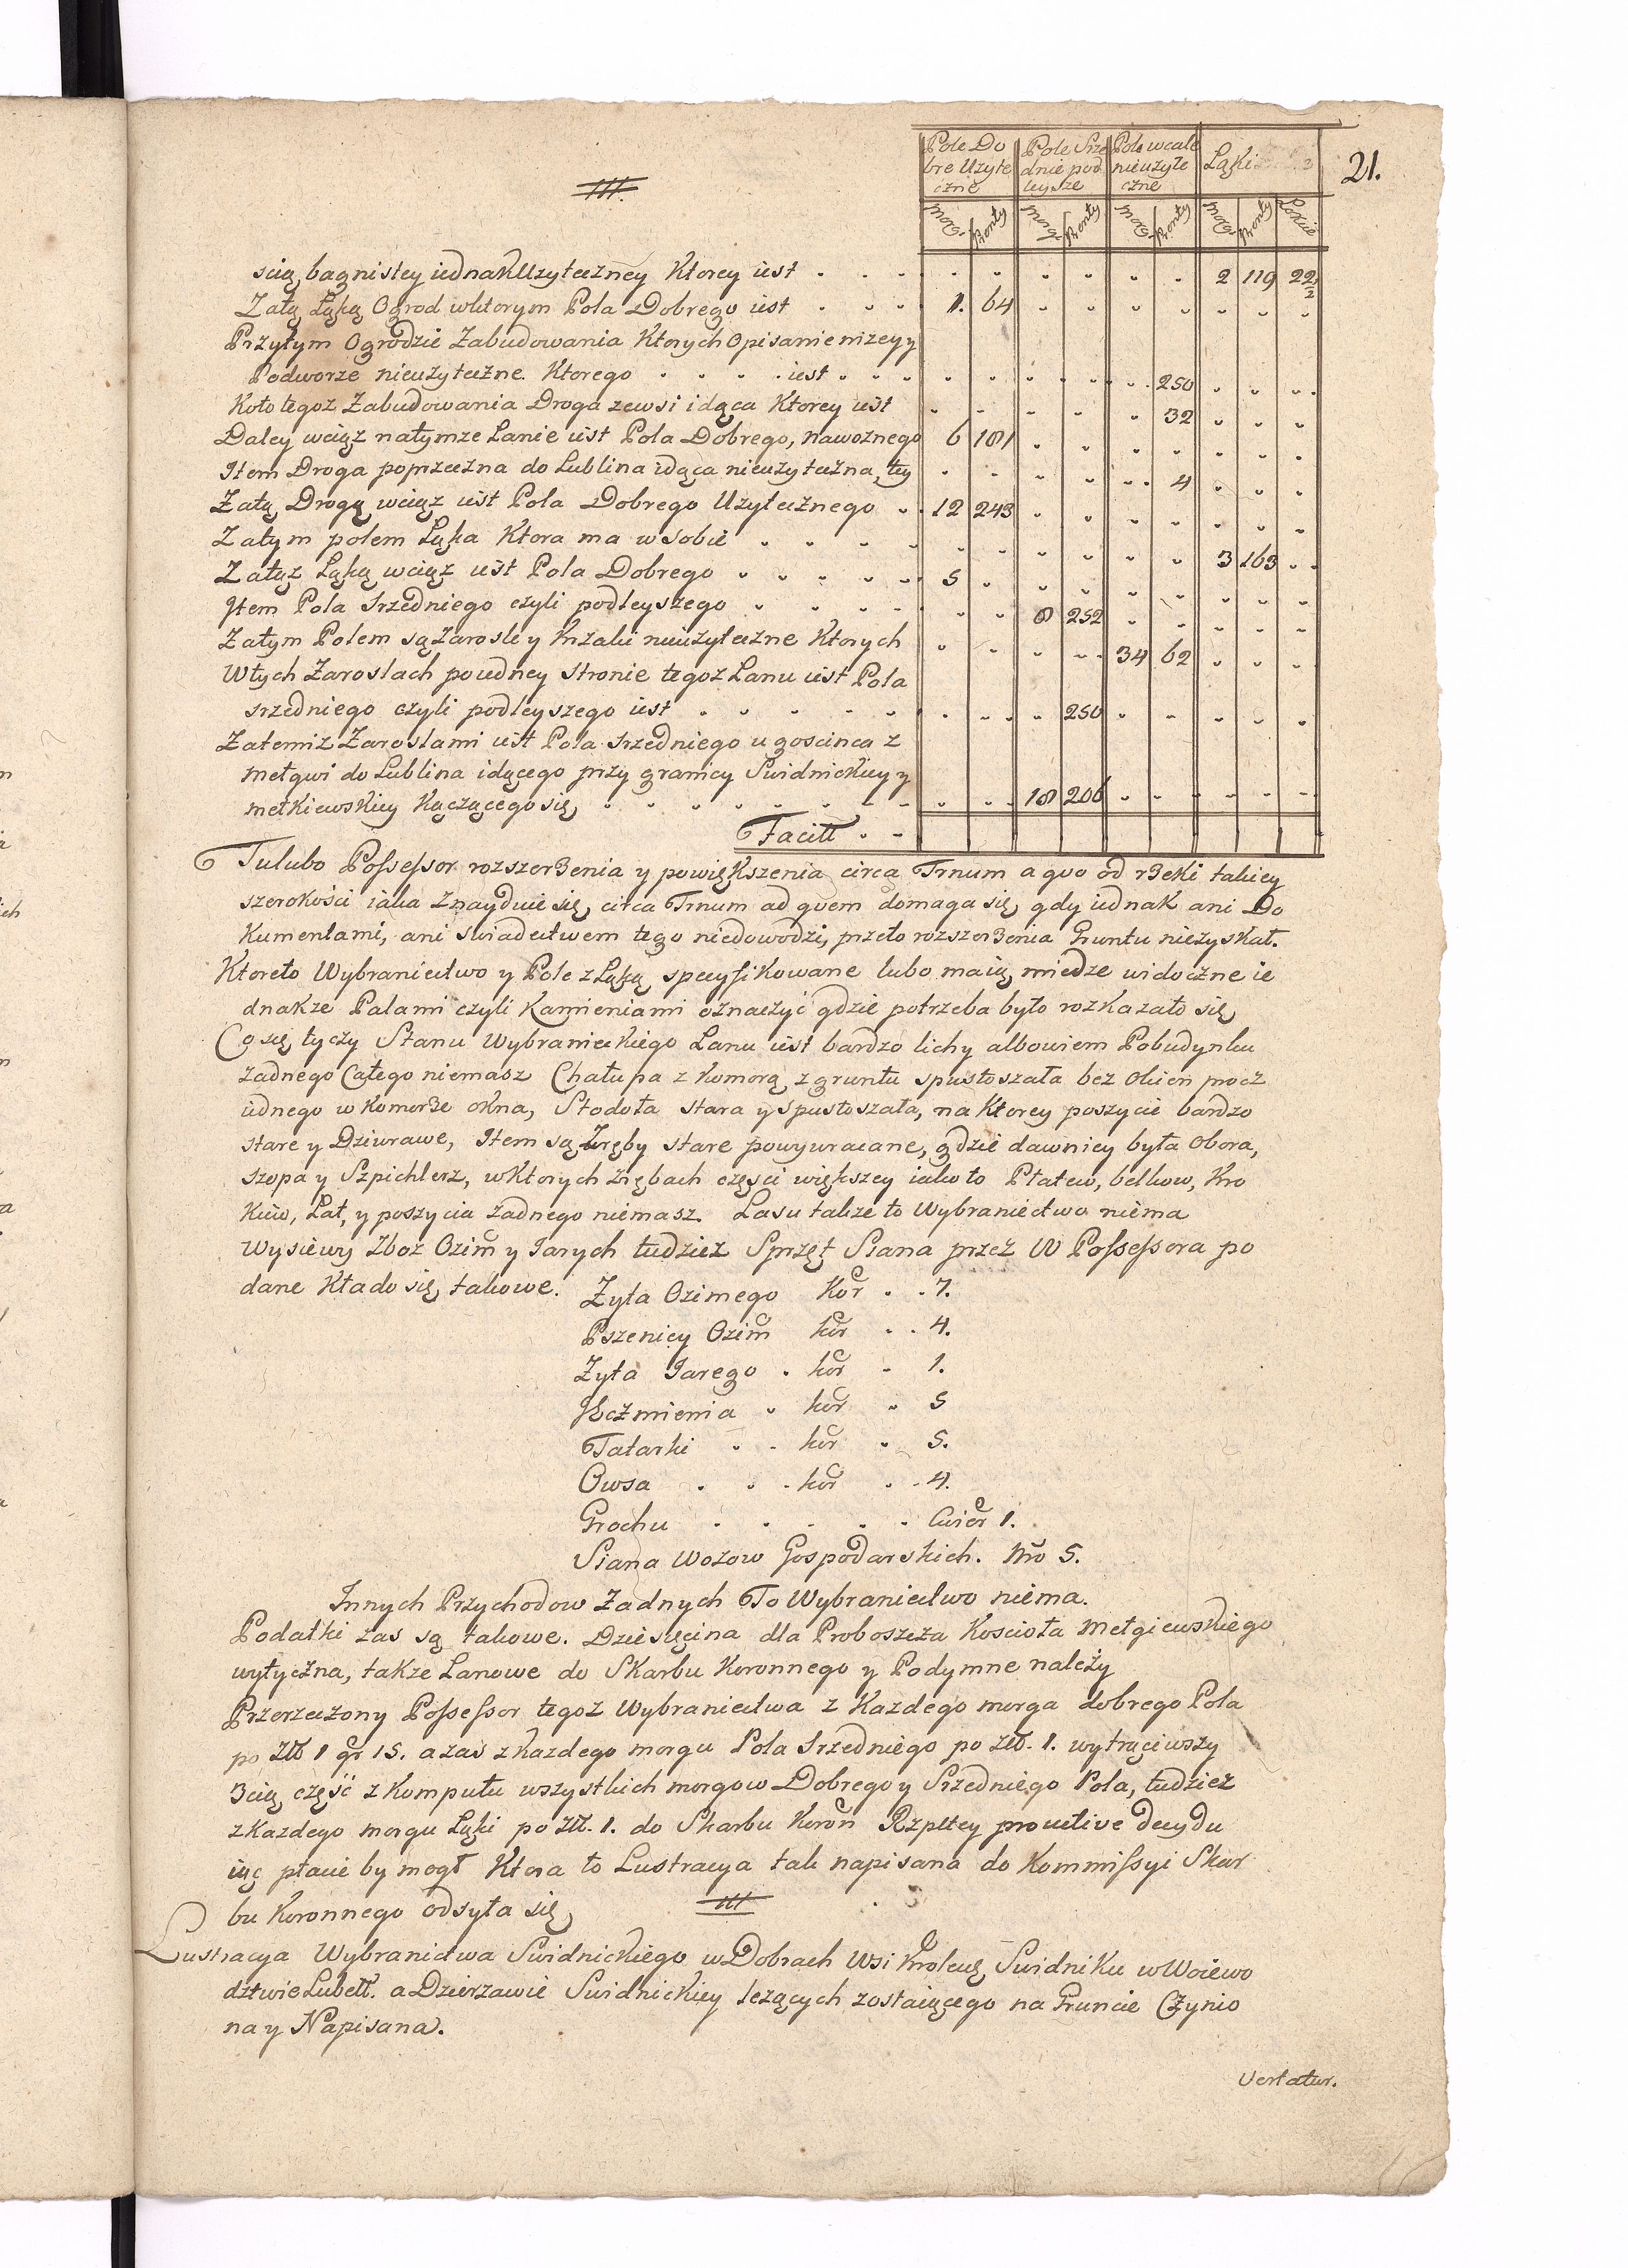 21.
Pole Do Pole Srze Pole wcale Łąki
bre Uzyte dnie pod nieuzyte
czne leysze czne
Morgi Pronty Morgi Pronty Morgi Pronty Morgi Pronty Łokcie
scią bagnistey iednak Uzyteczney Ktorey iest . . . 2 119 22½
Zatą Łąką Ogrod wktorym Pola Dobrego iest . . . 1. 64
Przytym Ogrodzie Zabudowania Ktorych Opisanie nizey y
Podworze nieuzyteczne. Ktorego . . . . iest . . . 250
Koło tegoz Zabudowania Droga zewsi idąca Ktorey iest 32
Daley wciąz natymze Łanie iest Pola Dobrego, nawoznego 6 181
Item Droga poprzeczna do Lublina idąca nieuzyteczna, tey 4
Zatą Drogą wciąz iest Pola Dobrego Uzytecznego . . 12 243
Zatym polem Łąka Ktora ma w sobie . . . . 3 163
Zatąz Łąką wciąz iest Pola Dobrego . . . . . 5
Item Pola srzedniego czyli podleyszego . . . . 8 252
Zatym Polem są Zarosle y Krzaki nieuzyteczne Ktorych 34 62
Wtych Zaroslach poiedney stronie tegoz Łanu iest Pola
srzedniego czyli podleyszego iest . . . . . 250
Zatemiz Zaroslami iest Pola srzedniego u goscinca z
Mełgwi do Lublina idącego przy granicy Swidnickiey y
mełkiewskiey Kączącego się . . . . . . . 18 206
Facitt . .
Tulubo Possessor rozszerzenia y powiększenia circa Trnum a quo od rzeki takiey
szerokości iaka znayduie się circa Trnum ad quem domaga się, gdy iednak ani Do
kumentami, ani swiadectwem tego niedowodzi, przeto rozszerzenia Gruntu niezyskał.
Ktoreto Wybraniectwo y Pole z Łąką specyfikowane lubo maią miedze widoczne ie
dnakze Palami czyli Kamieniami oznaczyć gdzie potrzeba było rozkazało się
Co się tyczy Stanu Wybranieckiego Łanu iest bardzo lichy albowiem Pobudynku
zadnego Całego niemasz Chałupa z Komorą z gruntu spustoszała bez Okien procz
iednego w Komorze okna, Stodoła stara y spustoszała, na Ktorey poszycie bardzo
stare y Dziurawe, Item są Zręby stare powywracane, gdzie dawniey była Obora,
szopa y Szpichlerz, wktorych zrębach części większey iakoto Płatew, belkow, Kro
kiew, Łat, y poszycia zadnego niemasz. Lasu takze to Wybraniectwo niema
Wysiewy Zboz Ozim y Jarych tudziez Sprzęt Siana przez W Possessora po
dane Kłado się takowe.
Zyta Ozimego Kor . . 7.
Pszenicy Ozim kor . . 4.
Zyta Jarego . kor . 1.
Jęczmienia . kor . 5
Tatarki . . kor . 5.
Owsa . . . kor . . 4.
Grochu . . . . . Cwier 1.
Siana Wozow Gospodarskich. Nro 5.
Innych Przychodow Zadnych To Wybraniectwo niema.
Podatki zas są takowe. Dziesięcina dla Proboszcza Koscioła Mełgiewskiego
wytyczna, takze Łanowe do Skarbu Koronnego y Podymne należy
Przerzeczony Possessor tegoz Wybraniectwa z Kazdego morga dobrego Pola
po Złł 1 gr 15. a zaś z kazdego morgu Pola Srzedniego po złł. 1. wytrąciwszy
3cią część z Komputu wszystkich morgow Dobrego y Srzedniego Pola, tudziez
z Kazdego morgu Łąki po Złł. 1. do Skarbu Koron Rzpltey decydu
iąc płacić by mogł Ktora to Lustracya tak napisana do Kommissyi Skar
bu Koronnego odsyła się
Lustracya Wybraniectwa Swidnickiego w Dobrach Wsi Krolewę Swidniku w Woiewo
dztwie Lubell. a Dzierzawie Swidnickiey lezących zostaiącego na Gruncie Czynio
na y Napisana.
Vertatur.